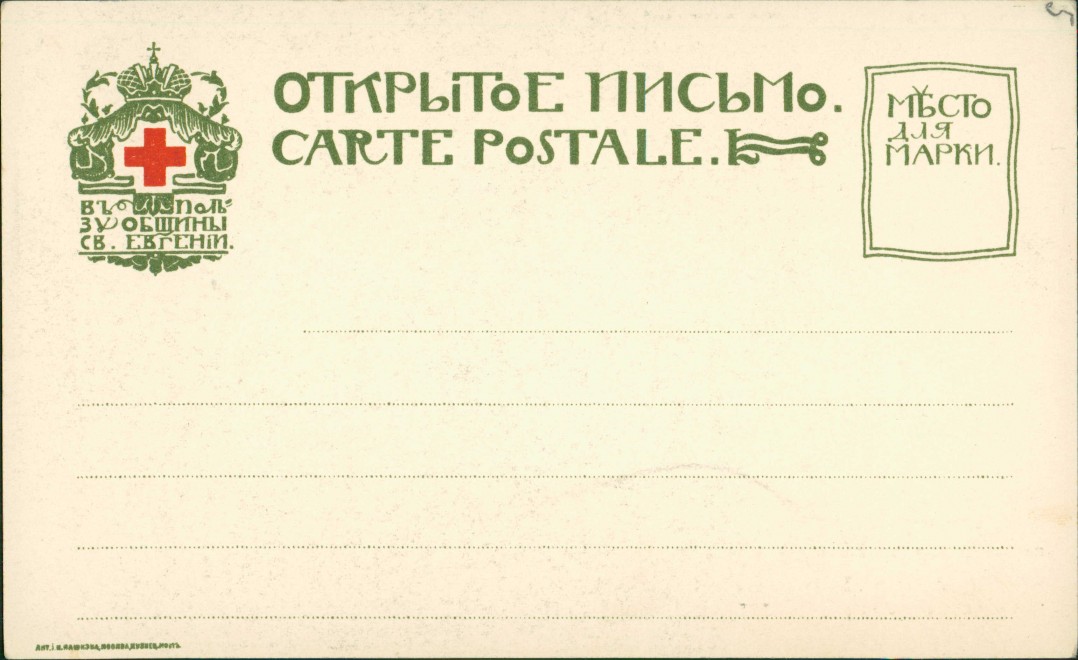 ОТКРЫТОЕ ПИСЬМО.
CARTE POSTALE.
МѢСТО
ДЛЯ
МАРКИ.
ВЪ ПОЛЬ-
ЗУ ОБЩИНЫ
СВ. ЕВГЕНІИ.